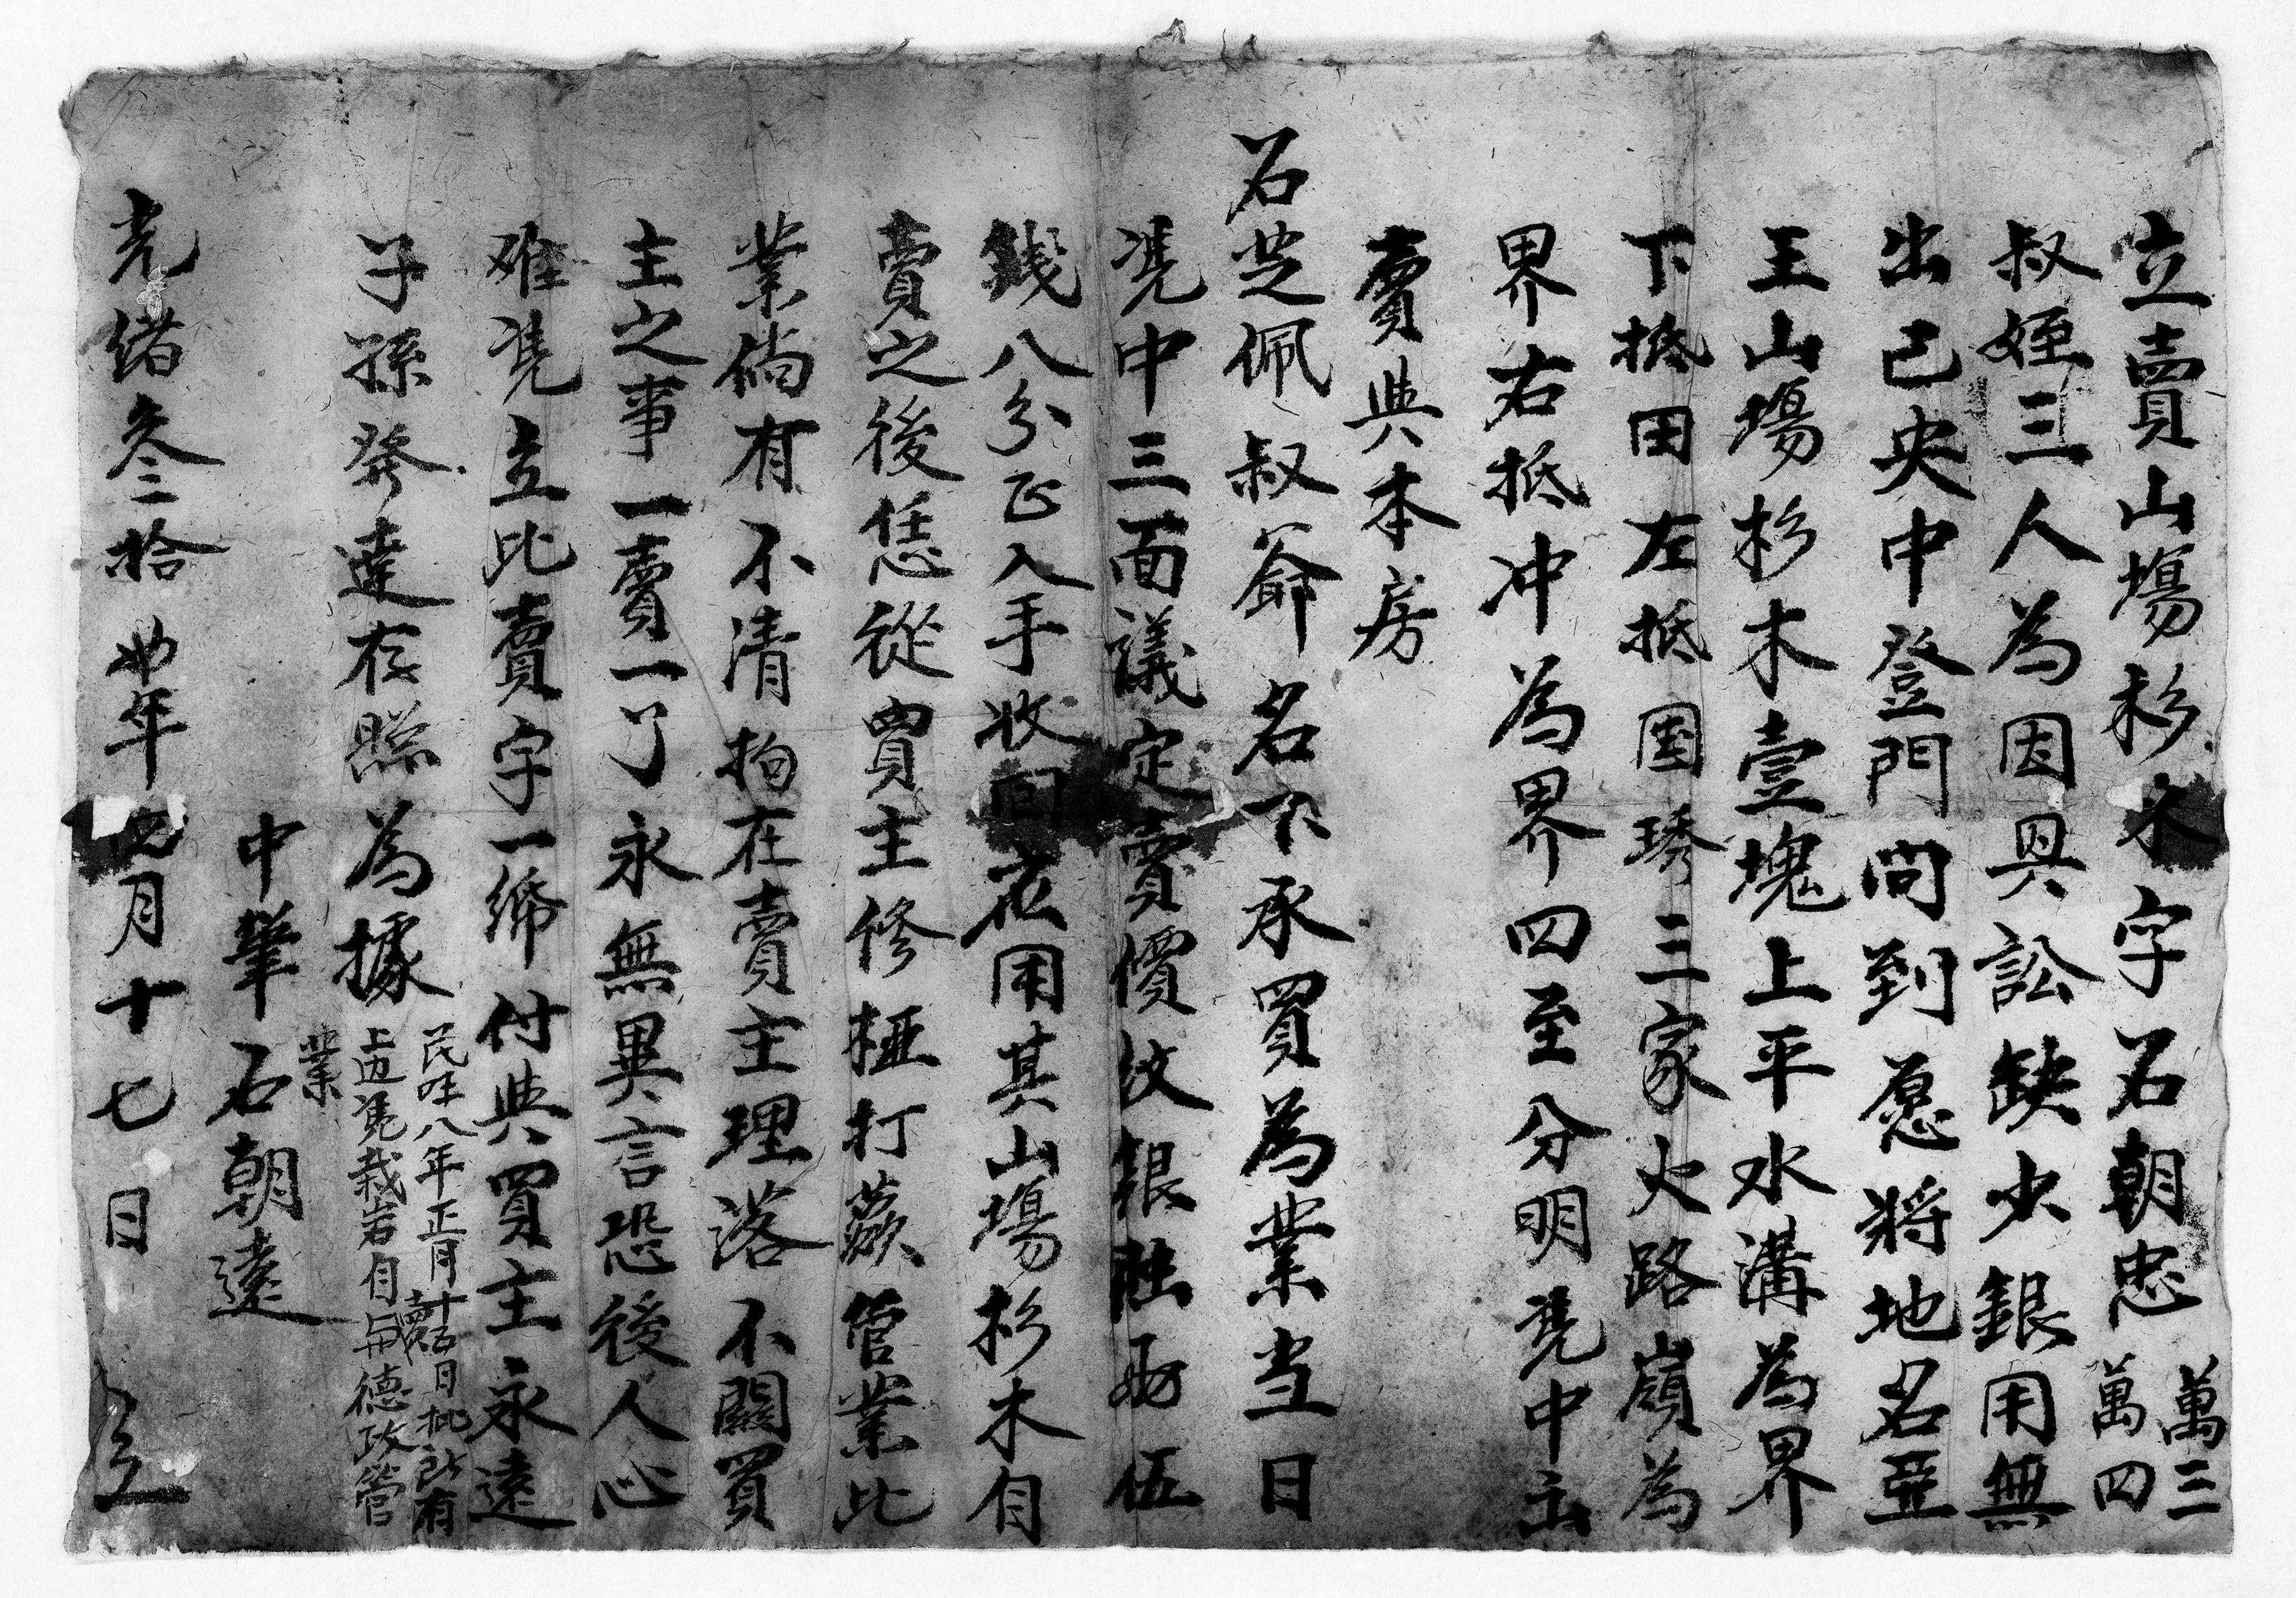 立賣山塲杉木字石朝忠萬三萬四
叔姪三人為因具訟缺少銀用無
出己央中登門問到愿將地名亞
王山塲杉木壹塊上平水溝為界
下抵田左抵国琇三家火路嶺為
界右抵冲為界四至分明凴中出
賣與本房
石芝佩叔爺名下承買為業当日
凴中三面議定賣價紋銀陆両伍
錢八分正入手收回應用其山塲杉木自
賣之後恁從買主修桠打蔸管業比
業倘有不清拘在賣主理落不關買
主之事一賣一了永無異言恐後人心
难凴立比賣字一紙付與買主永遠
子孫發達存照為據
民国八年正月十五日批所有
上边凭栽岩自賣與德政管
業
中筆石朝遠
光緒叁拾 年 月十七日 立